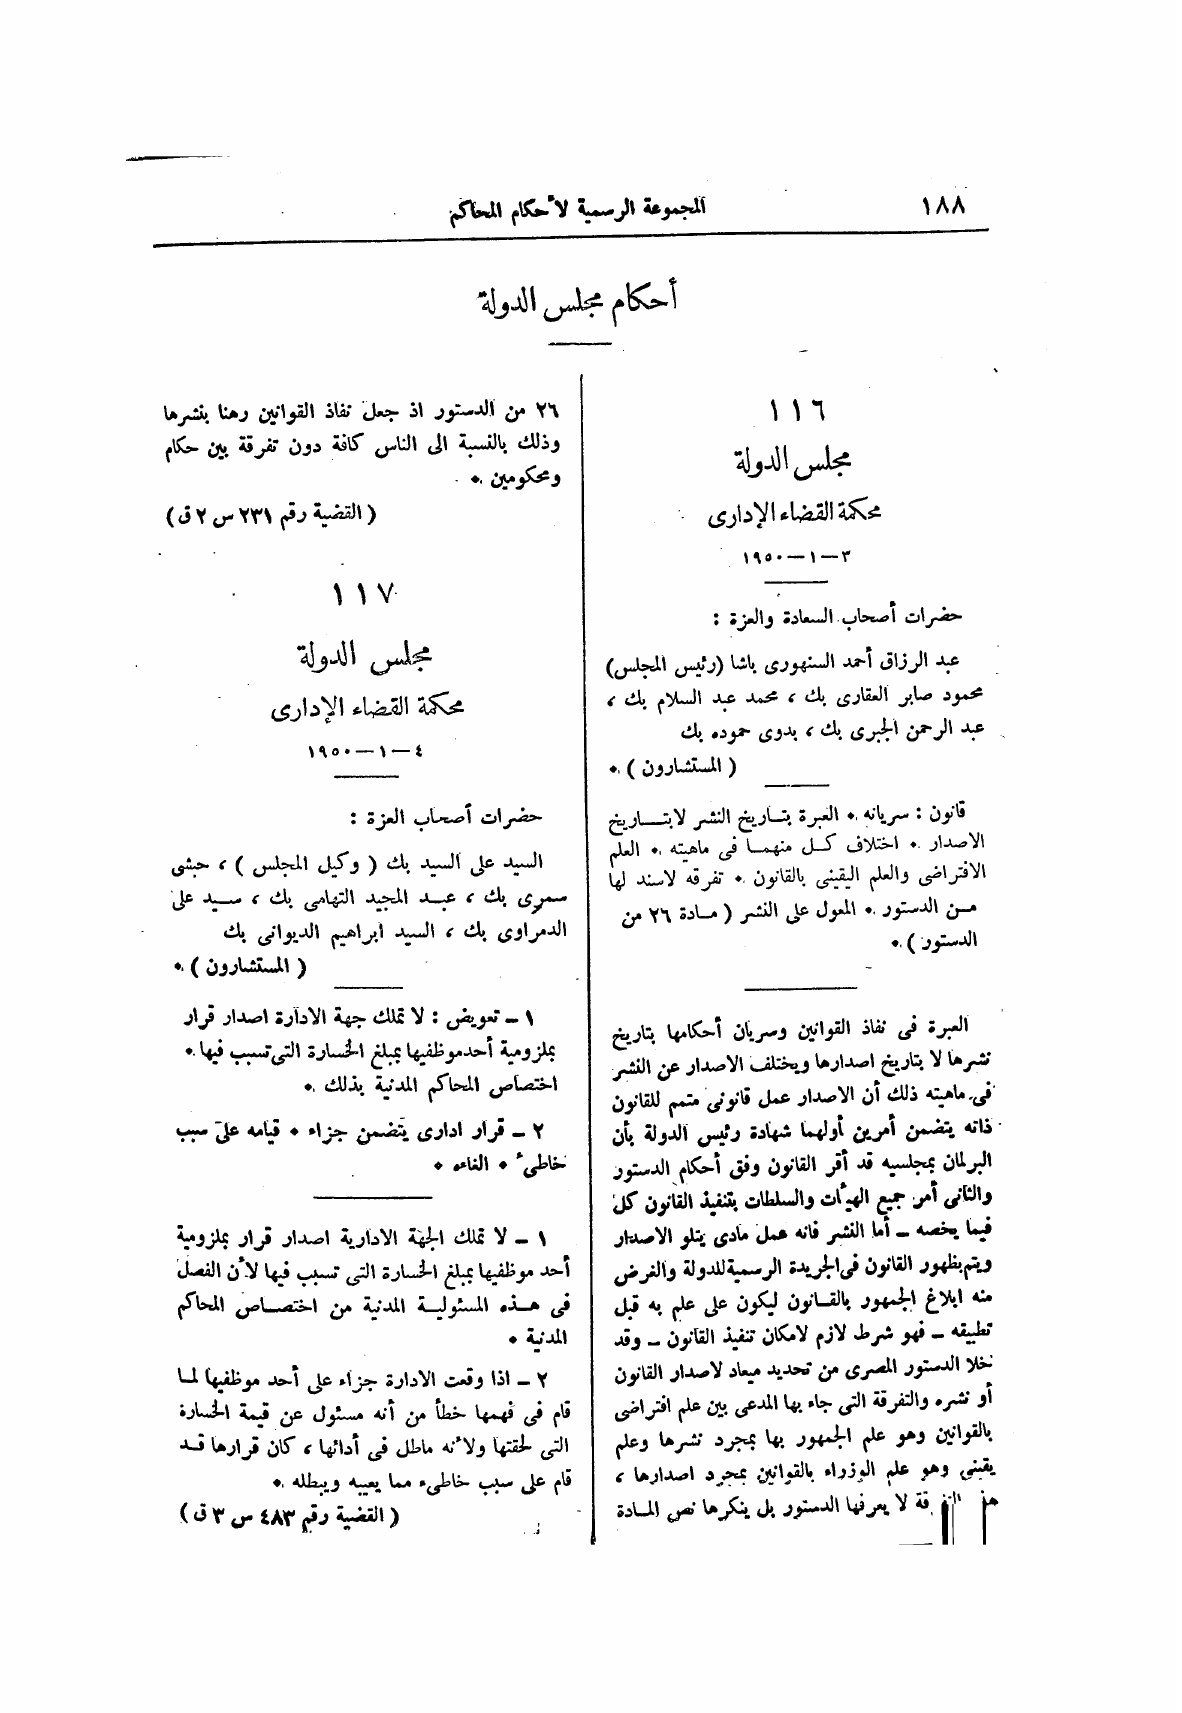 ١٨٨
المجموعة الرسمية لأحكام المحاكم
أحكام مجلس الدولة
١١٦
مجلس الدولة
محكمة القضاء الإدارى
٣ – ١ – ١٩٥٠
حضرات أصحاب السعادة والعزة :
عبد الرزاق أحمد السنهورى باشا (رئيس المجلس)
محمود صابر العقارى بك ، محمد عبد السلام بك ،
عبد الرحمن الجبرى بك ، بدوى حموده بك
( المستشارون ) .
قانون : سريانه . العبرة بتاريخ النشر لا بتاريخ
الاصدار . اختلاف كل منهما فى ماهيته . العلم
الافتراضى والعلم اليقينى بالقانون . تفرقه لاسند لها
من الدستور . المعول على النشر ( مادة ٢٦ من
الدستور ) .
العبرة فى نفاذ القوانين وسريان أحكامها بتاريخ
نشرها لا بتاريخ اصدارها ويختلف الاصدار عن النشر
فى ماهيته ذلك أن الاصدار عمل قانونى متمم للقانون
ذاته يتضمن أمرين أولهما شهادة رئيس الدولة بأن
البرلمان بمجلسيه قد أقر القانون وفق أحكام الدستور
والثانى أمر جميع الهيأت والسلطات بتنفيذ القانون كل
فيما يخصه – أما النشر فانه عمل مادى يتلو الاصدار
ويتم بظهور القانون فى الجريدة الرسمية للدولة والغرض
منه ابلاغ الجمهور بالقانون ليكون على علم به قبل
تطبيقه – فهو شرط لازم لامكان تنفيذ القانون – وقد
خلا الدستور المصرى من تحديد ميعاد لاصدار القانون
أو نشره والتفرقة التى جاء بها المدعى بين علم افتراضى
بالقوانين وهو علم الجمهور بها بمجرد نشرها وعلم
يقينى وهو علم الوزراء بالقوانين بمجرد اصدارها ،
لا يعرفها الدستور بل ينكرها نص المادة
٢٦ من الدستور اذ جعل نفاذ القوانين رهنا بنشرها
وذلك بالنسبة الى الناس كافة دون تفرقة بين حكام
ومحكومين .
( القضية رقم ٢٣١ س ٢ ق )
١١٧
مجلس الدولة
محكمة القضاء الإدارى
٤ – ١ – ١٩٥٠
حضرات أصحاب العزة :
السيد على السيد بك ( وكيل المجلس ) ، حبشى
سمرى بك ، عبد المجيد التهامى بك ، سيد على
الدمراوى بك ، السيد ابراهيم الديوانى بك
( المستشارون ) .
١ – تعويض : لا تملك جهة الادارة اصدار قرار
بملزومية أحد موظفيها بمبلغ الخسارة التى تسبب فيها .
اختصاص المحاكم المدنية بذلك .
٢ – قرار ادارى يتضمن جزاء . قيامه على سبب
خاطىء . الغاءه .
١ – لا تملك الجهة الادارية اصدار قرار بملزومية
أحد موظفيها بمبلغ الخسارة التى تسبب فيها لأن الفصل
فى هذه المسئولية المدنية من اختصاص المحاكم
المدنية .
٢ – اذا وقعت الادارة جزاء على أحد موظفيها لما
قام فى فهمها خطأ من أنه مسئول عن قيمة الخسارة
التى لحقتها ولأنه ماطل فى أدائها ، كان قرارها قد
قام على سبب خاطىء مما يعيبه ويبطله .
( القضية رقم ٤٨٣ س ٣ ق )